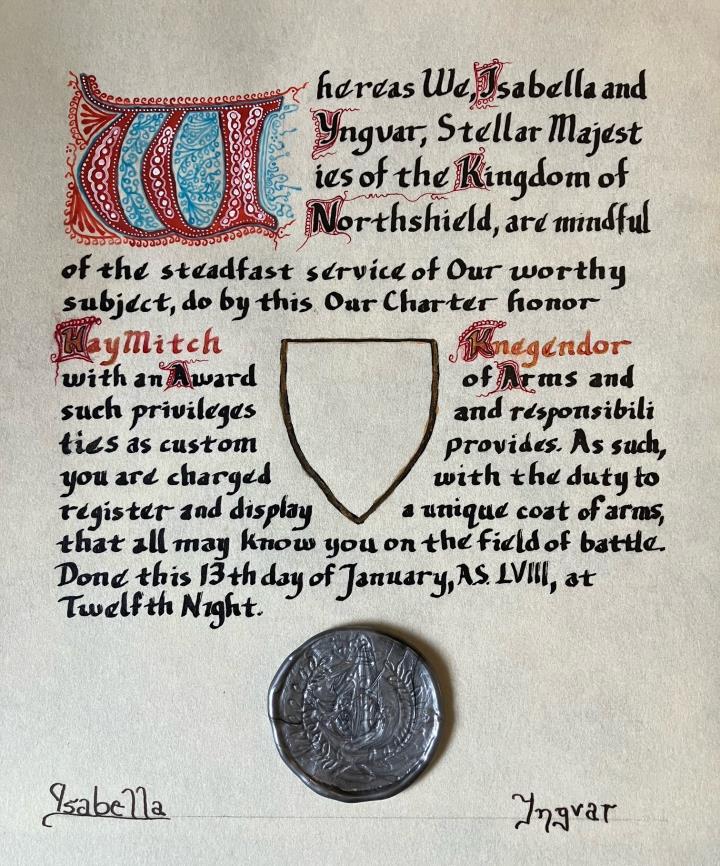 Whereas We, Isabella and
Yngvar, Stellar Majest
ies of the Kingdom of
Northshield, are mindful
of the steadfast service of Our worthy
subject, do by this Our Charter honor
HayMitch Knegendor
with an Award of Arms and
such privileges and responsibili
ties as custom provides. As such,
you are charged with the duty to
register and display a unique coat of arms,
that all may know you on the field of battle.
Done this 13th day of January, A.S. LVIII, at
Twelfth Night.
Isabella Yngvar